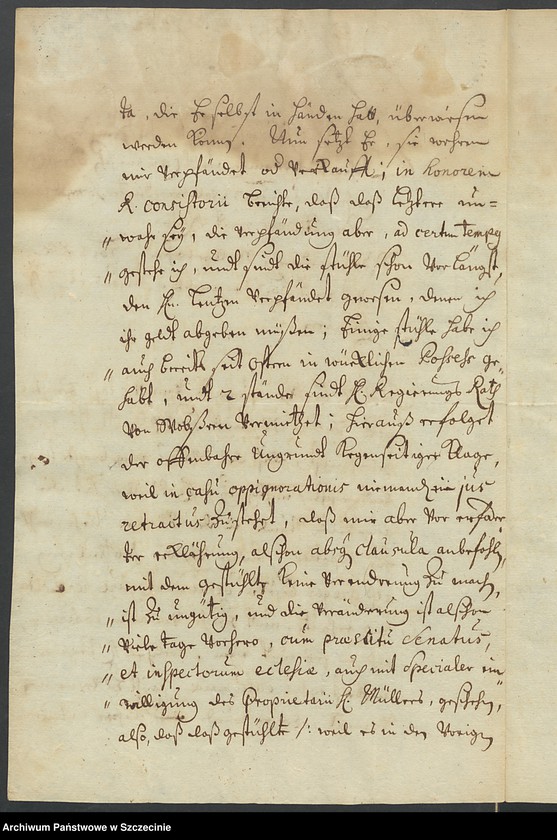 ta, die Er selbst in händen hatt, überwiesen
werden könne. Nun setzt Er, sie wehren
mir verpfändet od verkaufft; in honorem
R. consistorii berichte, daß daß letztere un=
„ wahr sey, die verpfändung aber, ad certum tempus
„ gestehe ich, undt sindt die stühle schon vorlängst,
den Hn. verpfändet gewesen, denen ich
ihr geldt abgeben müßen; Einige stühle habe ich
„ auch bereits seit Ostern in würcklichen Possess ge-
habt, undt 2 stände sindt H. Regierungs Rath
von vermiehtet; hierauß erfolget
der offenbahre Ungrundt kegenseitiger Klage,
weil in casu oppignorationis niemandten jus
retractus zustehet, daß mir aber vor
ter erklährung, alschon clausula anbefohln,
mit dem gestühlte keine verendrung zu machn,
„ ist zu ungütig, und die veränderung ist alschon
„ viele tage vorhero, cum præscitu Senatus,
„ et inspectorum eclesiæ, auch mit specialer ein
„ willigung des Proprietarii H. Müllers, geschehn,
also, daß daß gestühlte /: weil es in den vorign
Archiwum Państwowe w Szczecinie